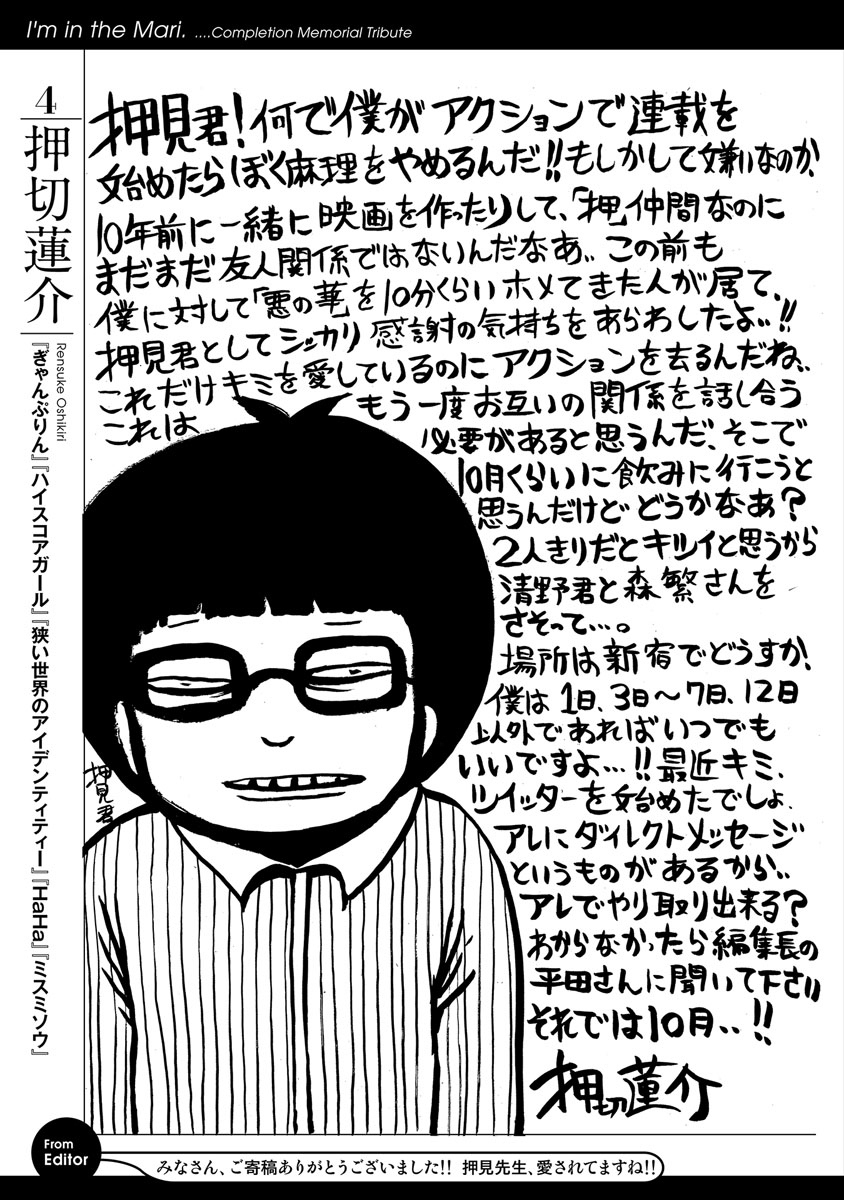 I'm in the Mari. ....Completion Memorial Tribute
4
押切蓮介
Rensuke Oshikiri
『ぎゃんぷりん』『ハイスコアガール』『狭い世界のアイデンティティー』『HaHa』『ミスミソウ』
押見君!何で僕がアクションで連載を
始めたらぼく麻理をやめるんだ!!もしかして嫌いなのか、
10年前に一緒に映画を作ったりして、「押」仲間なのに
まだまだ友人関係ではないんだなあ、、この前も
僕に対して「悪の華」を10分くらいホメてきた人が居て、
押見君としてシッカリ感謝の気持ちをあらわしたよ、、!!
これだけキミを愛しているのにアクションを去るんだね、、
これは もう一度お互いの関係を話し合う
必要があると思うんだ、そこで
10月くらいに飲みに行こうと
思うんだけどどうかなあ?
2人きりだとキツイと思うから
清野君と森繁さんを
さそって…。
場所は新宿でどうすか、
僕は1日、3日〜7日、12日
以外であればいつでも
いいですよ…!!最近キミ、
ツイッターを始めたでしょ、
アレにダイレクトメッセージ
というものがあるから、、
アレでやり取り出来る?
わからなかったら編集長の
平田さんに聞いて下さい
それでは10月、、!!
押切蓮介
押見君
From
Editor
みなさん、ご寄稿ありがとうございました!! 押見先生、愛されてますね!!